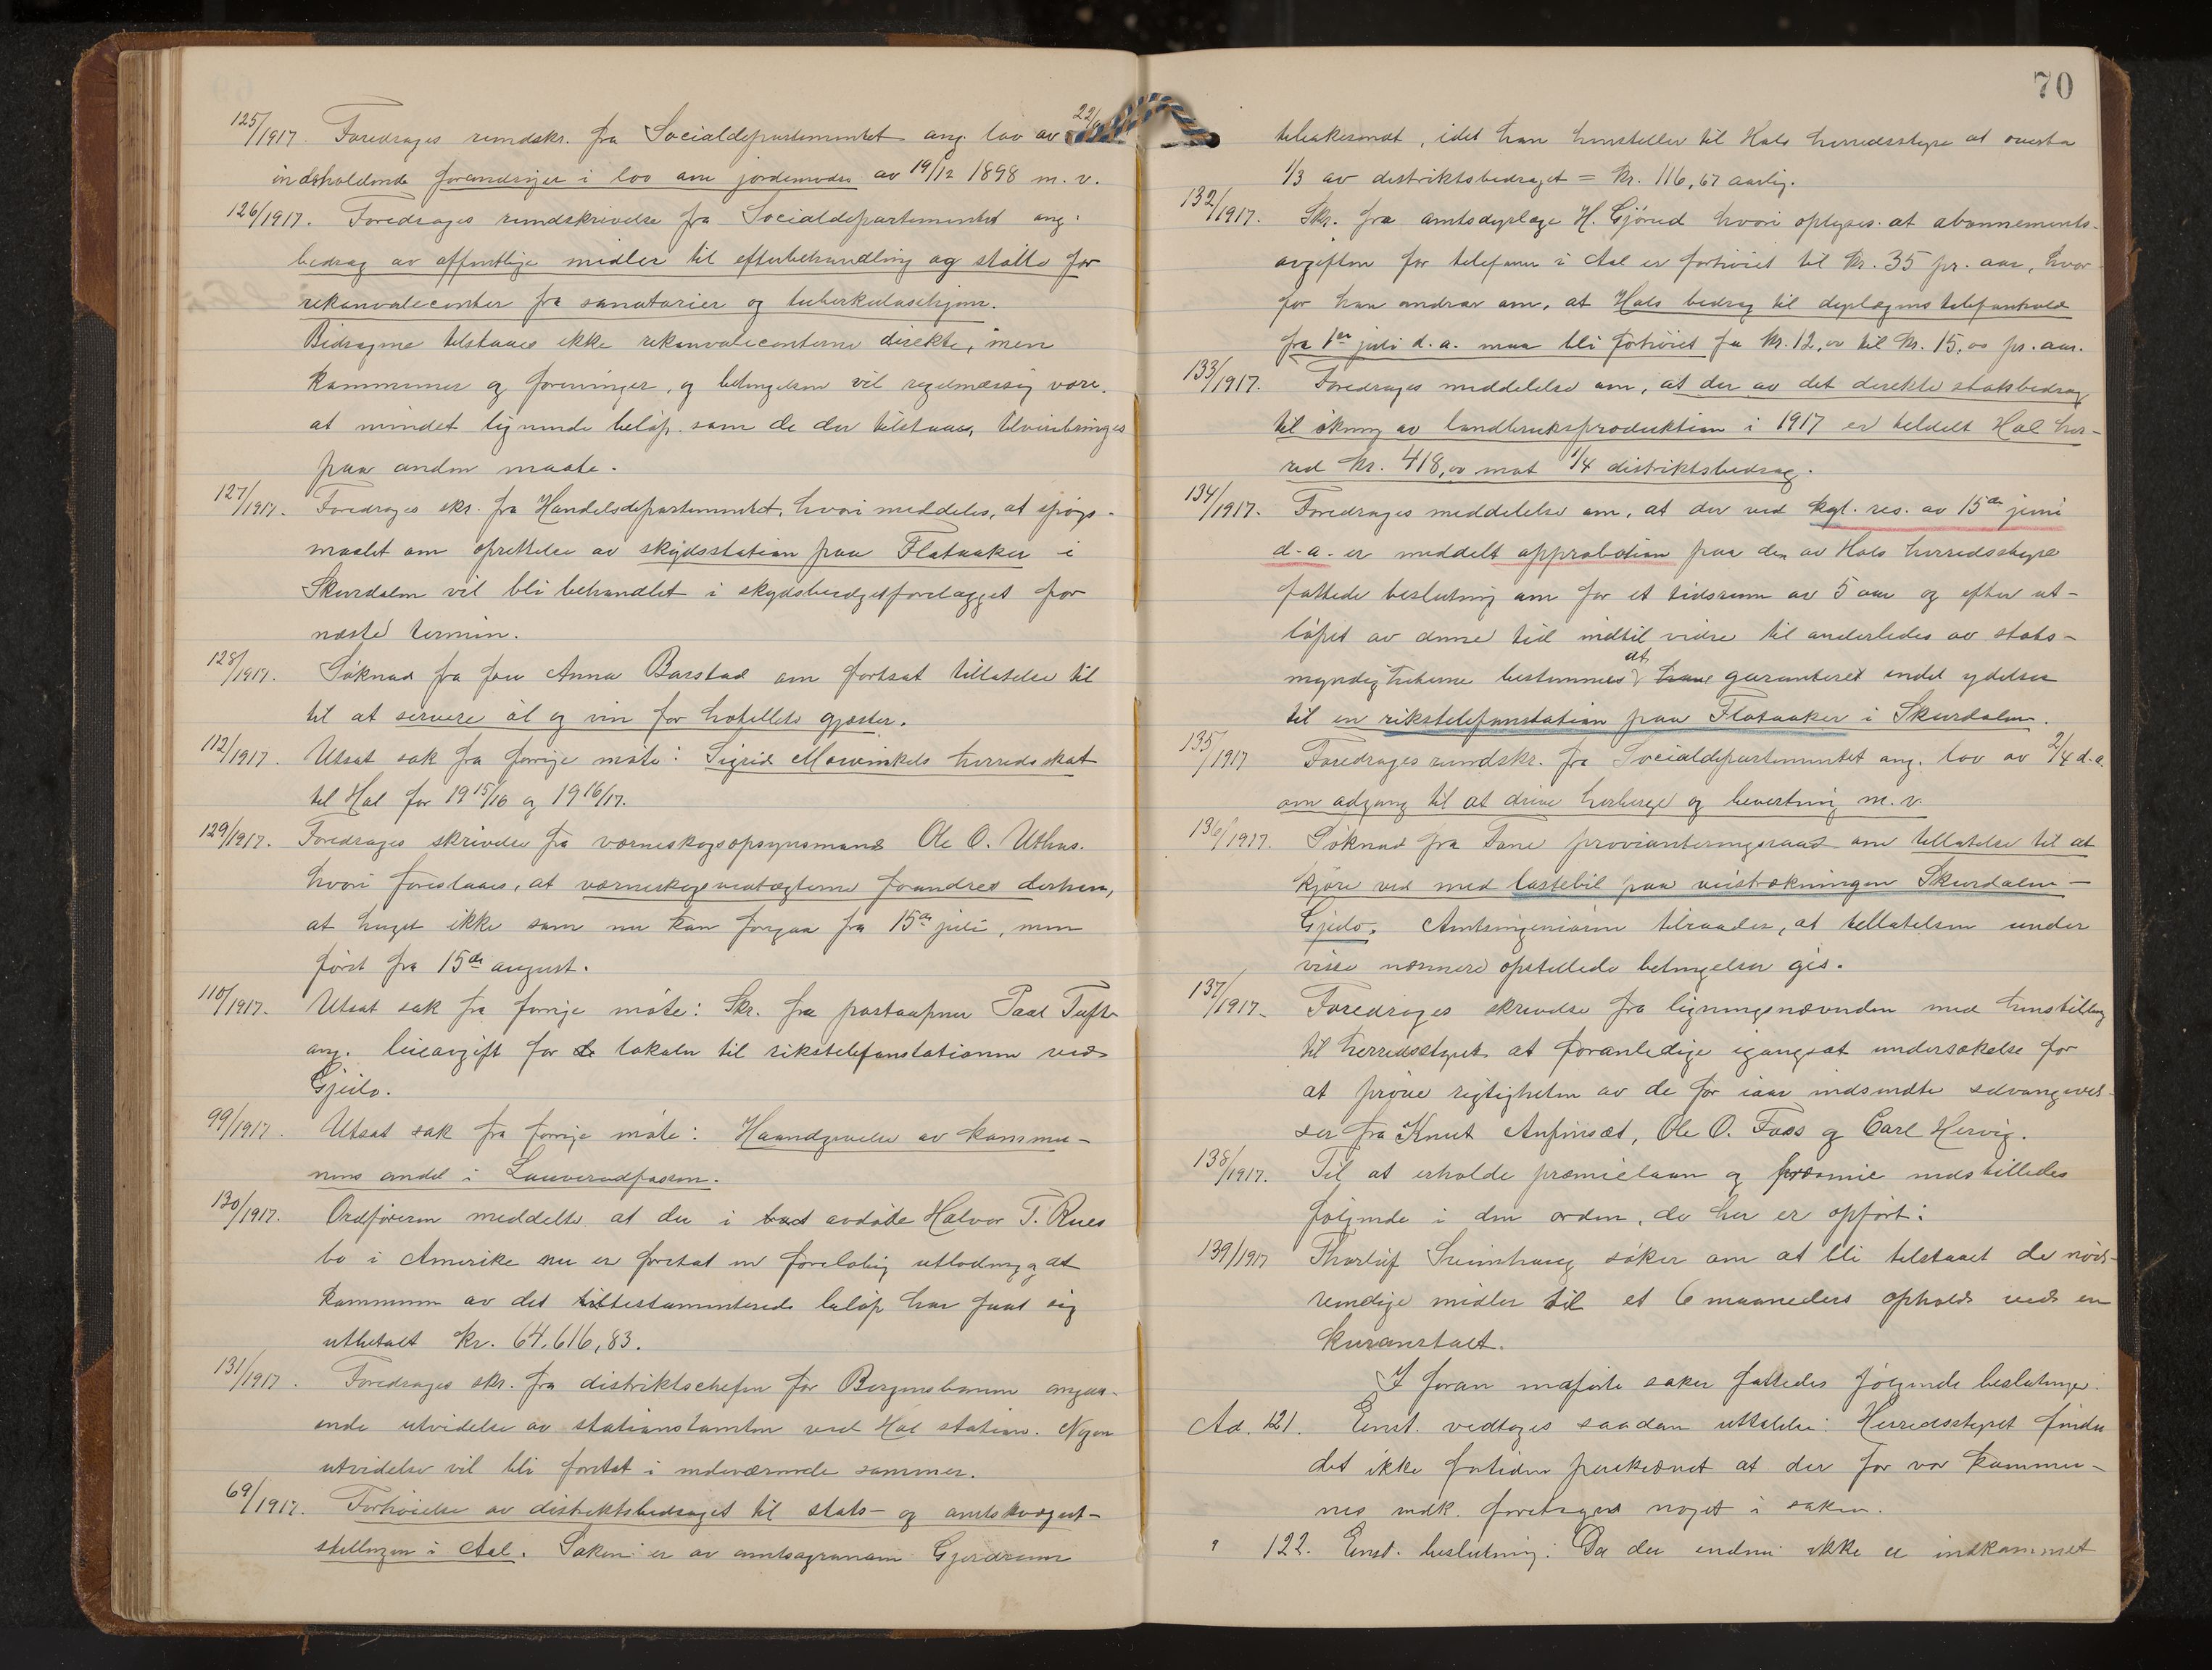 125/1917. Foredrages rundskr. fra Socialdepartementet ang. lov av 22/
indholdende forandringer i lov om jordemødre av 19/12 1898 m. v.
126/1917. Foredrages rundskrivelse fra Socialdepartementet ang.
bidrag av offentlige midler til efterbehandling og støtte for
rekonvalecenter fra sanatorier og tuberkulosehjem.
Bidragene tilstaaes ikke rekonvalecenterne direkte, men
kommuner og foreninger, og betingelsen vil regelmæssig være,
at mindst lignende beløp som de der tilstaaes, tilveiebringes
paa anden maate.
127/1917. Foredrages skr. fra Handelsdepartementet, hvori meddeles, at spørgs-
maalet om oprettelse av skydsstation paa Flataaker i
Skurdalen vil bli behandlet i skydsbudgetforelægget for
næste termin.
128/1917. Søknad fra fru Anna Barstad om fortsat tillatelse til
til at servere øl og vin for hotellets gjæster.
112/1917. Utsat sak fra forrige møte: Sigrid Mowinkels herredsskat
til Hol for 1915/16 og 1916/17.
129/1917. Foredrages skrivelse fra værneskogsopsynsmand Ole O. Uthus.
hvori foreslaaes, at værneskogsvedtægterne forandres derhen,
at hugst ikke som nu kan foregaa fra 15de juli, men
først fra 15de august.
110/1917. Utsat sak fra forrige møte: Skr. fra postaapner Paal Tufte
ang. leieavgift for de lokaler til rikstelefonstationen ved
Gjeilo.
99/1917. Utsat sak fra forrige møte: Haandgivelse av kommu-
nens andel i
130/1917. Ordføreren meddelte at der i avdøde Halvor T. Rues
bo i Amerika nu er foretat en foreløbig utlodning og at
kommunen av det testamenterede beløp har faat sig
utbetalt kr. 64.616,83.
131/1917. Foredrages skr. fra distriktschefen for Bergensbanen angaa-
ende utvidelse av stationstomten ved Hol station. Nogen
utvidelse vil bli foretat i indeværende sommer.
69/1917. Forhøielse av distriktsbidraget til stats- og amtskvægut-
stillingen i Aal. Saken er av amtsagronom Gjerdrum
70
tilbakesendt, idet han henstiller til Hols herredsstyre at overta
1/3 av distriktsbidraget = kr. 116,67 aarlig.
132/1917. Skr. fra amtsdyrlæge H. Gjörud hvori oplyses at abonnements-
avgiften for telefonen i Aal er forhøiet til kr. 35 pr. aar, hvor-
for han andrar om, at Hols bidrag til dyrlægens telefonhold
fra 1ste juli d.a. maa bli forhøiet fra kr. 12,00 til kr. 15,00 pr. aar.
133/1917. Foredrages meddelelse om, at der av det direkte statsbidrag
til økning av landbruksproduktion i 1917 er tildelt Hol her-
red kr. 418,00 mot 1/4 distriktsbidrag.
134/1917. Foredrages meddelelse om, at der ved kgl. res. av 15de juni
d.a. er meddelt approbation paa den av Hols herredsstyre
fattede beslutning om for et tidsrum av 5 aar og efter ut-
løpet av denne tid indtil videre til anderledes av stats-
myndigheterne bestemmes at garanteret endel ydelser
til en rikstelefonstation paa Flataaker i Skurdalen.
135/1917 Foredrages rundskr. fra Socialdepartementet ang. lov av 2/4 d.a.
om adgang til at drive herberge og bevertning m. v.
136/1917. Søknad fra Fane provianteringsraad om tillatelse til at
kjøre ved med lastebil paa veistrækningen Skurdalen –
Gjeilo. Amtsingeniøren tilraader, at tillatelsen under
visse nærmere opstillede betingelser gis.
137/1917. Foredrages skrivelse fra ligningsnævnden med henstilling
til herredsstyret at foranledige igangsat undersøkelse for
at prøve rigtigheten av de for iaar indsendte selvangivel-
ser fra Knut Anfinset, Ole O. Foss og Carl Hervig.
138/1917. Til at erholde præmielaan og præmie indstilledes
følgende i den orden, de her er opført:
139/1917 Thorleif søker om at bli tilstaaet de nød-
vendige midler til et 6 maaneders ophold ved en
kuranstalt.
I foran indførte saker fattedes følgende beslutninger:
Ad. 121. Enst. vedtoges saadan uttalelse: Herredsstyret finder
det ikke fortiden paakrævet at der for vor kommu-
nes vedk. foretages noget i saken.
" 122. Enst. beslutning: Da der endnu ikke er indkommet